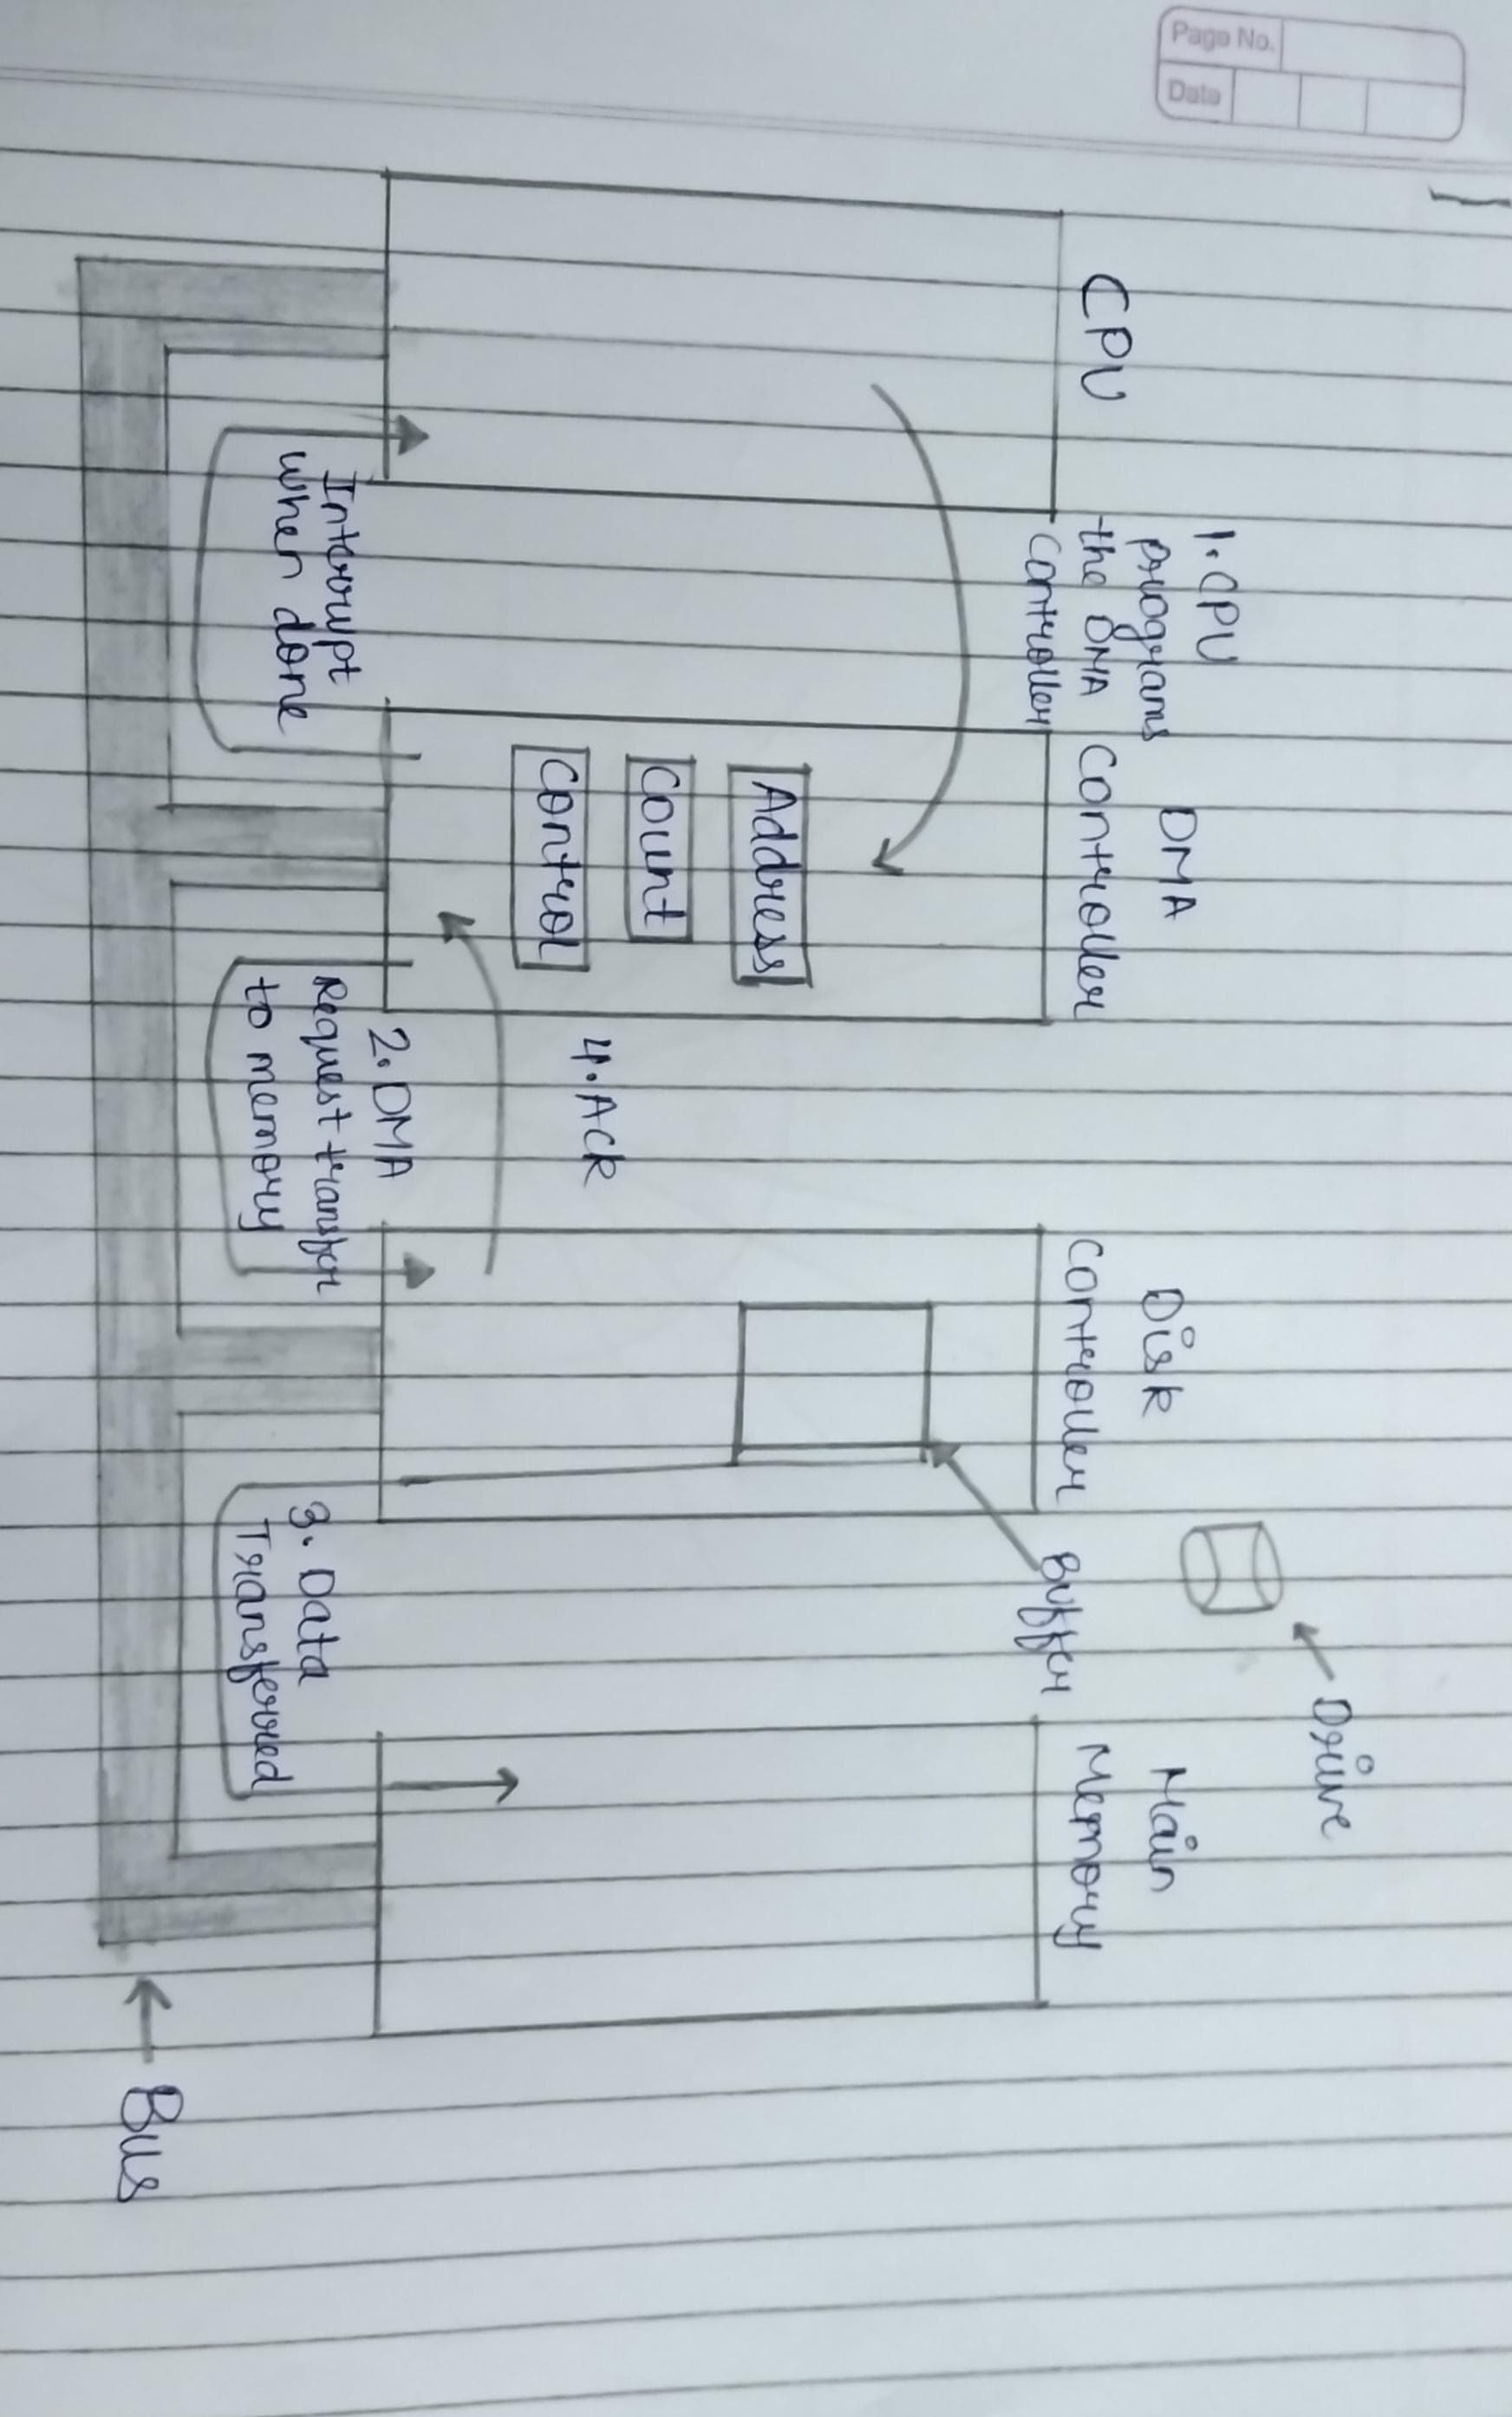 Page No.
Date
CPU
1. CPU
programs
the DMA
controller
DMA
Controller
Address
Count
Control
Disk
Controller
Drive
Buffer
Main
Memory
4. Ack
Interrupt
when done
2. DMA
Request transfer
to memory
3. Data
Transferred
Bus